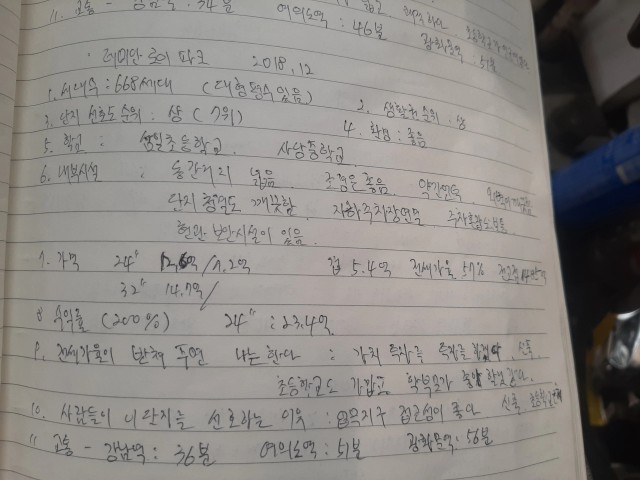 11. 교통 - 강남역 : 34분 여의도역 : 46분 광화문역 : 51분
· 래미안 로이 파크 2018.12
1. 세대수 : 668세대 (대형평수있음)
2. 생활권 순위 : 상
3. 단지 선호도 순위 : 상 (7위)
4. 환경 : 좋음
5. 학교 : 초등학교 사당중학교
6. 내부시설 : 동간거리 넓음. 조경은 좋음. 약간언덕.
단지 청결도 깨끗함. 지하주차장연결
현관 보안시설이 있음.
7. 가격 24" 12.6억/7.2억 갭 5.4억 전세가율 57%
32" 14.7억/
8. 수익률 (200%) 24" : 23.4억
9. 전세가율이 반해 주면 나는한다 :
초등학교도 가깝고 학부모가
10. 사람들이 이단지를 선호하는 이유 : 업무지구 접근성이 좋아 신축
11 교통 - 강남역 : 36분 여의도역 : 51분 광화문역 : 56분